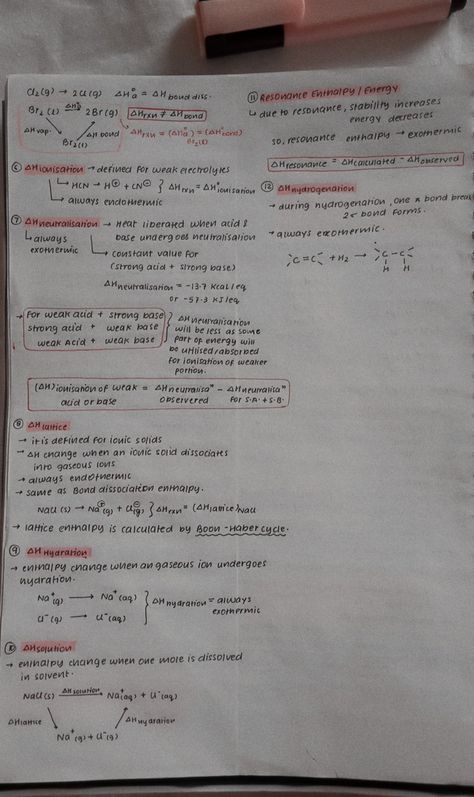 Cl₂(g) → 2Cl(g) ΔH°a = ΔH bond diss.
Br₂(l) —ΔH°a→ 2Br(g) ΔHrxn ≠ ΔHbond
ΔHvap. ΔH bond
Br₂(g)
ΔHrxn = (ΔH°a) = (ΔH°bond)
Br₂(l)
⑥ ΔHionisation → defined for weak electrolytes
↳ HCN → H⊕ + CN⊖ } ΔHrxn = ΔH°ionisation
↳ always endothermic
⑦ ΔHneutralisation → Heat liberated when acid &
↳ always base undergoes neutralisation
exothermic ↳ constant value for
(strong acid + strong base)
ΔHneutralisation = -13.7 Kcal/eq
or -57.3 KJ/eq
→ For weak acid + strong base
strong acid + weak base
weak Acid + weak base
} ΔHneutralisation
will be less as some
part of energy will
be utilised/absorbed
for ionisation of weaker
portion.
(ΔH)ionisation of weak = ΔHneutralisaⁿ - ΔHneutralisaⁿ
acid or base observered for S.A.+S.B.
⑧ ΔHlattice
→ it is defined for ionic solids
→ ΔH change when an ionic solid dissociates
into gaseous ions
→ always endothermic
→ same as Bond dissociation enthalpy.
NaCl(s) → Na⊕(g) + Cl⊖(g) } ΔHrxn = (ΔHlattice)NaCl
→ lattice enthalpy is calculated by Boon-Haber cycle.
⑨ ΔHHydration)
→ enthalpy change when an gaseous ion undergoes
hydration.
Na⁺(g) → Na⁺(aq)
Cl⁻(g) → Cl⁻(aq)
} ΔHhydration = always
exothermic
⑩ ΔHsolution
→ enthalpy change when one mole is dissolved
in solvent.
NaCl(s) —ΔHsolution→ Na⁺(aq) + Cl⁻(aq)
ΔHlattice ΔHhydration
Na⁺(g) + Cl⁻(g)
⑪ Resonance Enthalpy/Energy
↳ due to resonance, stability increases
energy decreases
so, resonance enthalpy → exothermic
ΔHresonance = ΔHcalculated - ΔHobserved
⑫ ΔHhydrogenation
→ during hydrogenation, one π bond break
2σ bond forms.
→ always exothermic.
C=C + H₂ → C-C
H H